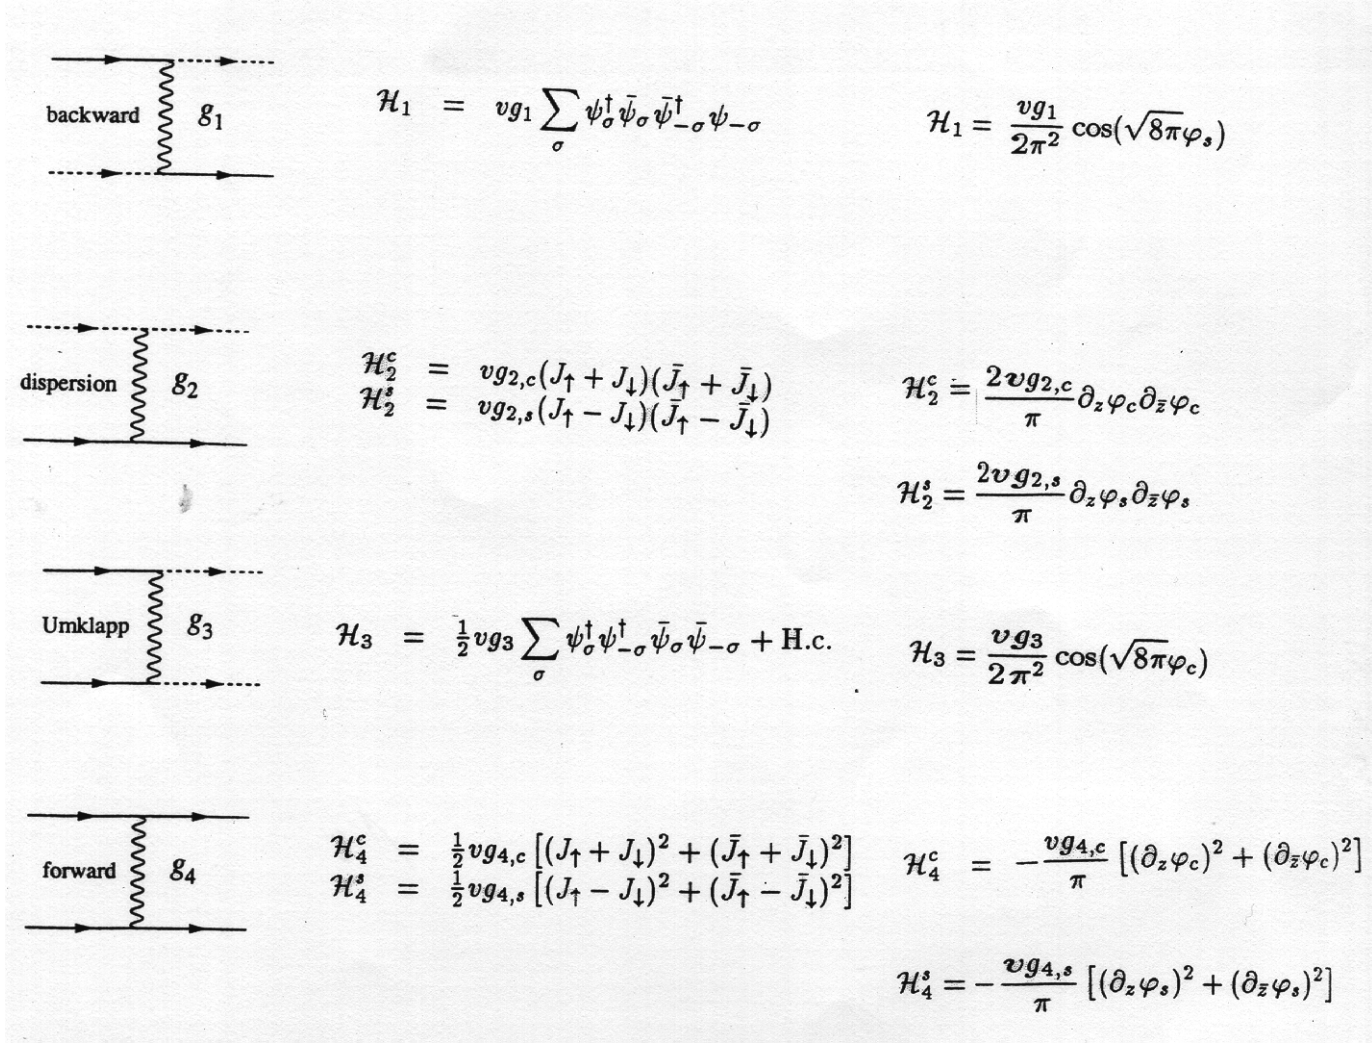 backward g₁ ℋ₁ = vg₁ ∑_σ ψ†_σ ψ̄_σ ψ̄†_{-σ} ψ_{-σ} ℋ₁ = vg₁/2π² cos(√8π φ_s)
dispersion g₂ ℋ₂ᶜ = vg_{2,c}(J_↑ + J_↓)(J̄_↑ + J̄_↓) ℋ₂ᶜ = 2vg_{2,c}/π ∂_z φ_c ∂_z̄ φ_c
ℋ₂ˢ = vg_{2,s}(J_↑ − J_↓)(J̄_↑ − J̄_↓)
ℋ₂ˢ = 2vg_{2,s}/π ∂_z φ_s ∂_z̄ φ_s
Umklapp g₃ ℋ₃ = ½vg₃ ∑_σ ψ†_σ ψ†_{-σ} ψ̄_σ ψ̄_{-σ} + H.c. ℋ₃ = vg₃/2π² cos(√8π φ_c)
forward g₄ ℋ₄ᶜ = ½vg_{4,c} [(J_↑ + J_↓)² + (J̄_↑ + J̄_↓)²] ℋ₄ᶜ = −vg_{4,c}/π [(∂_z φ_c)² + (∂_z̄ φ_c)²]
ℋ₄ˢ = ½vg_{4,s} [(J_↑ − J_↓)² + (J̄_↑ − J̄_↓)²]
ℋ₄ˢ = −vg_{4,s}/π [(∂_z φ_s)² + (∂_z̄ φ_s)²]